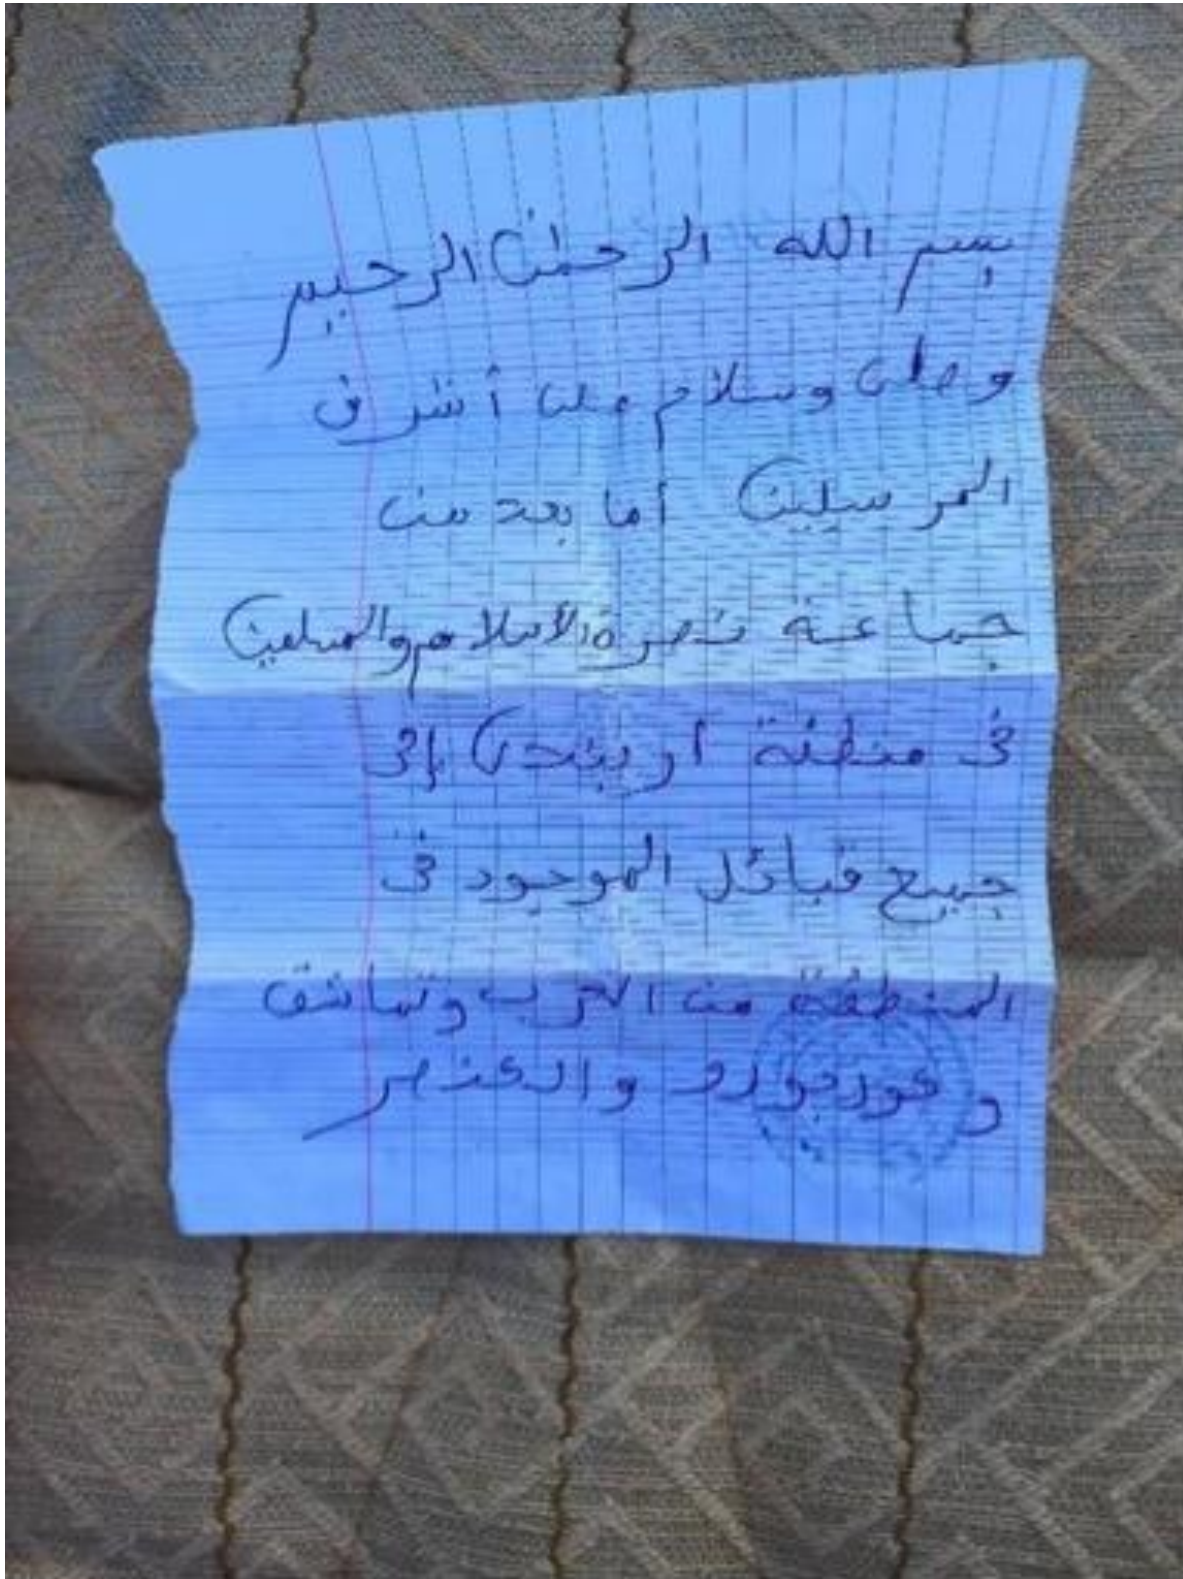 بسم الله الرحمن الرحيم
وصلى وسلام على أشرف
المرسلين أما بعد من
جماعة نصرة الأسلام والمسلمين
فى منطقة أربندى إلى
جميع قبائل الموجود فى
المنطقة من العرب وتماشق
و والعنصر